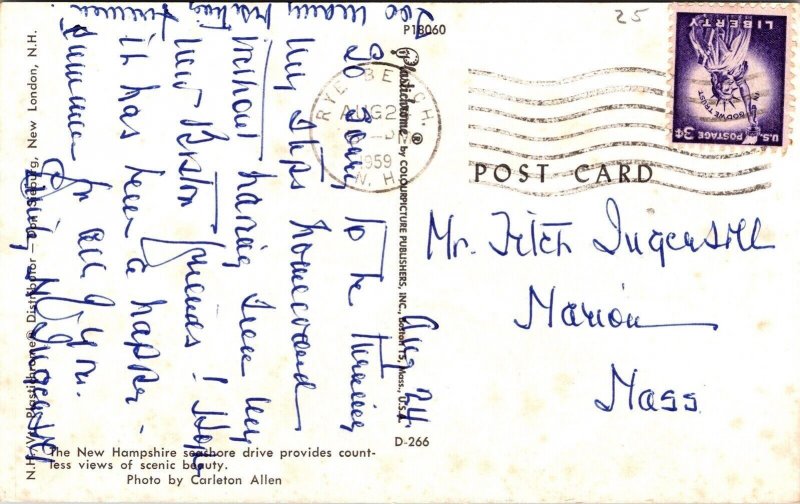 P18060
25
Plastichrome ® by COLOURPICTURE PUBLISHERS, INC., Boston 15, Mass., U.S.A.
RYE BEACH.
AUG 2
1959
N. H.
LIBERTY
IN GOD WE TRUST
U.S. POSTAGE 3¢
POST CARD
Mr. Fitch Ingersoll
Marion
Mass
Aug 24
So sorry to be turning
my steps homeward
without having seen my
new Boston friends! Hope
it has been a happy
summer for all of you.
Too many
firemen
D-266
The New Hampshire seashore drive provides count-
less views of scenic beauty.
Photo by Carleton Allen
N.H.-Vt. Plastichrome® Distributor — Don Sieburg, New London, N.H.